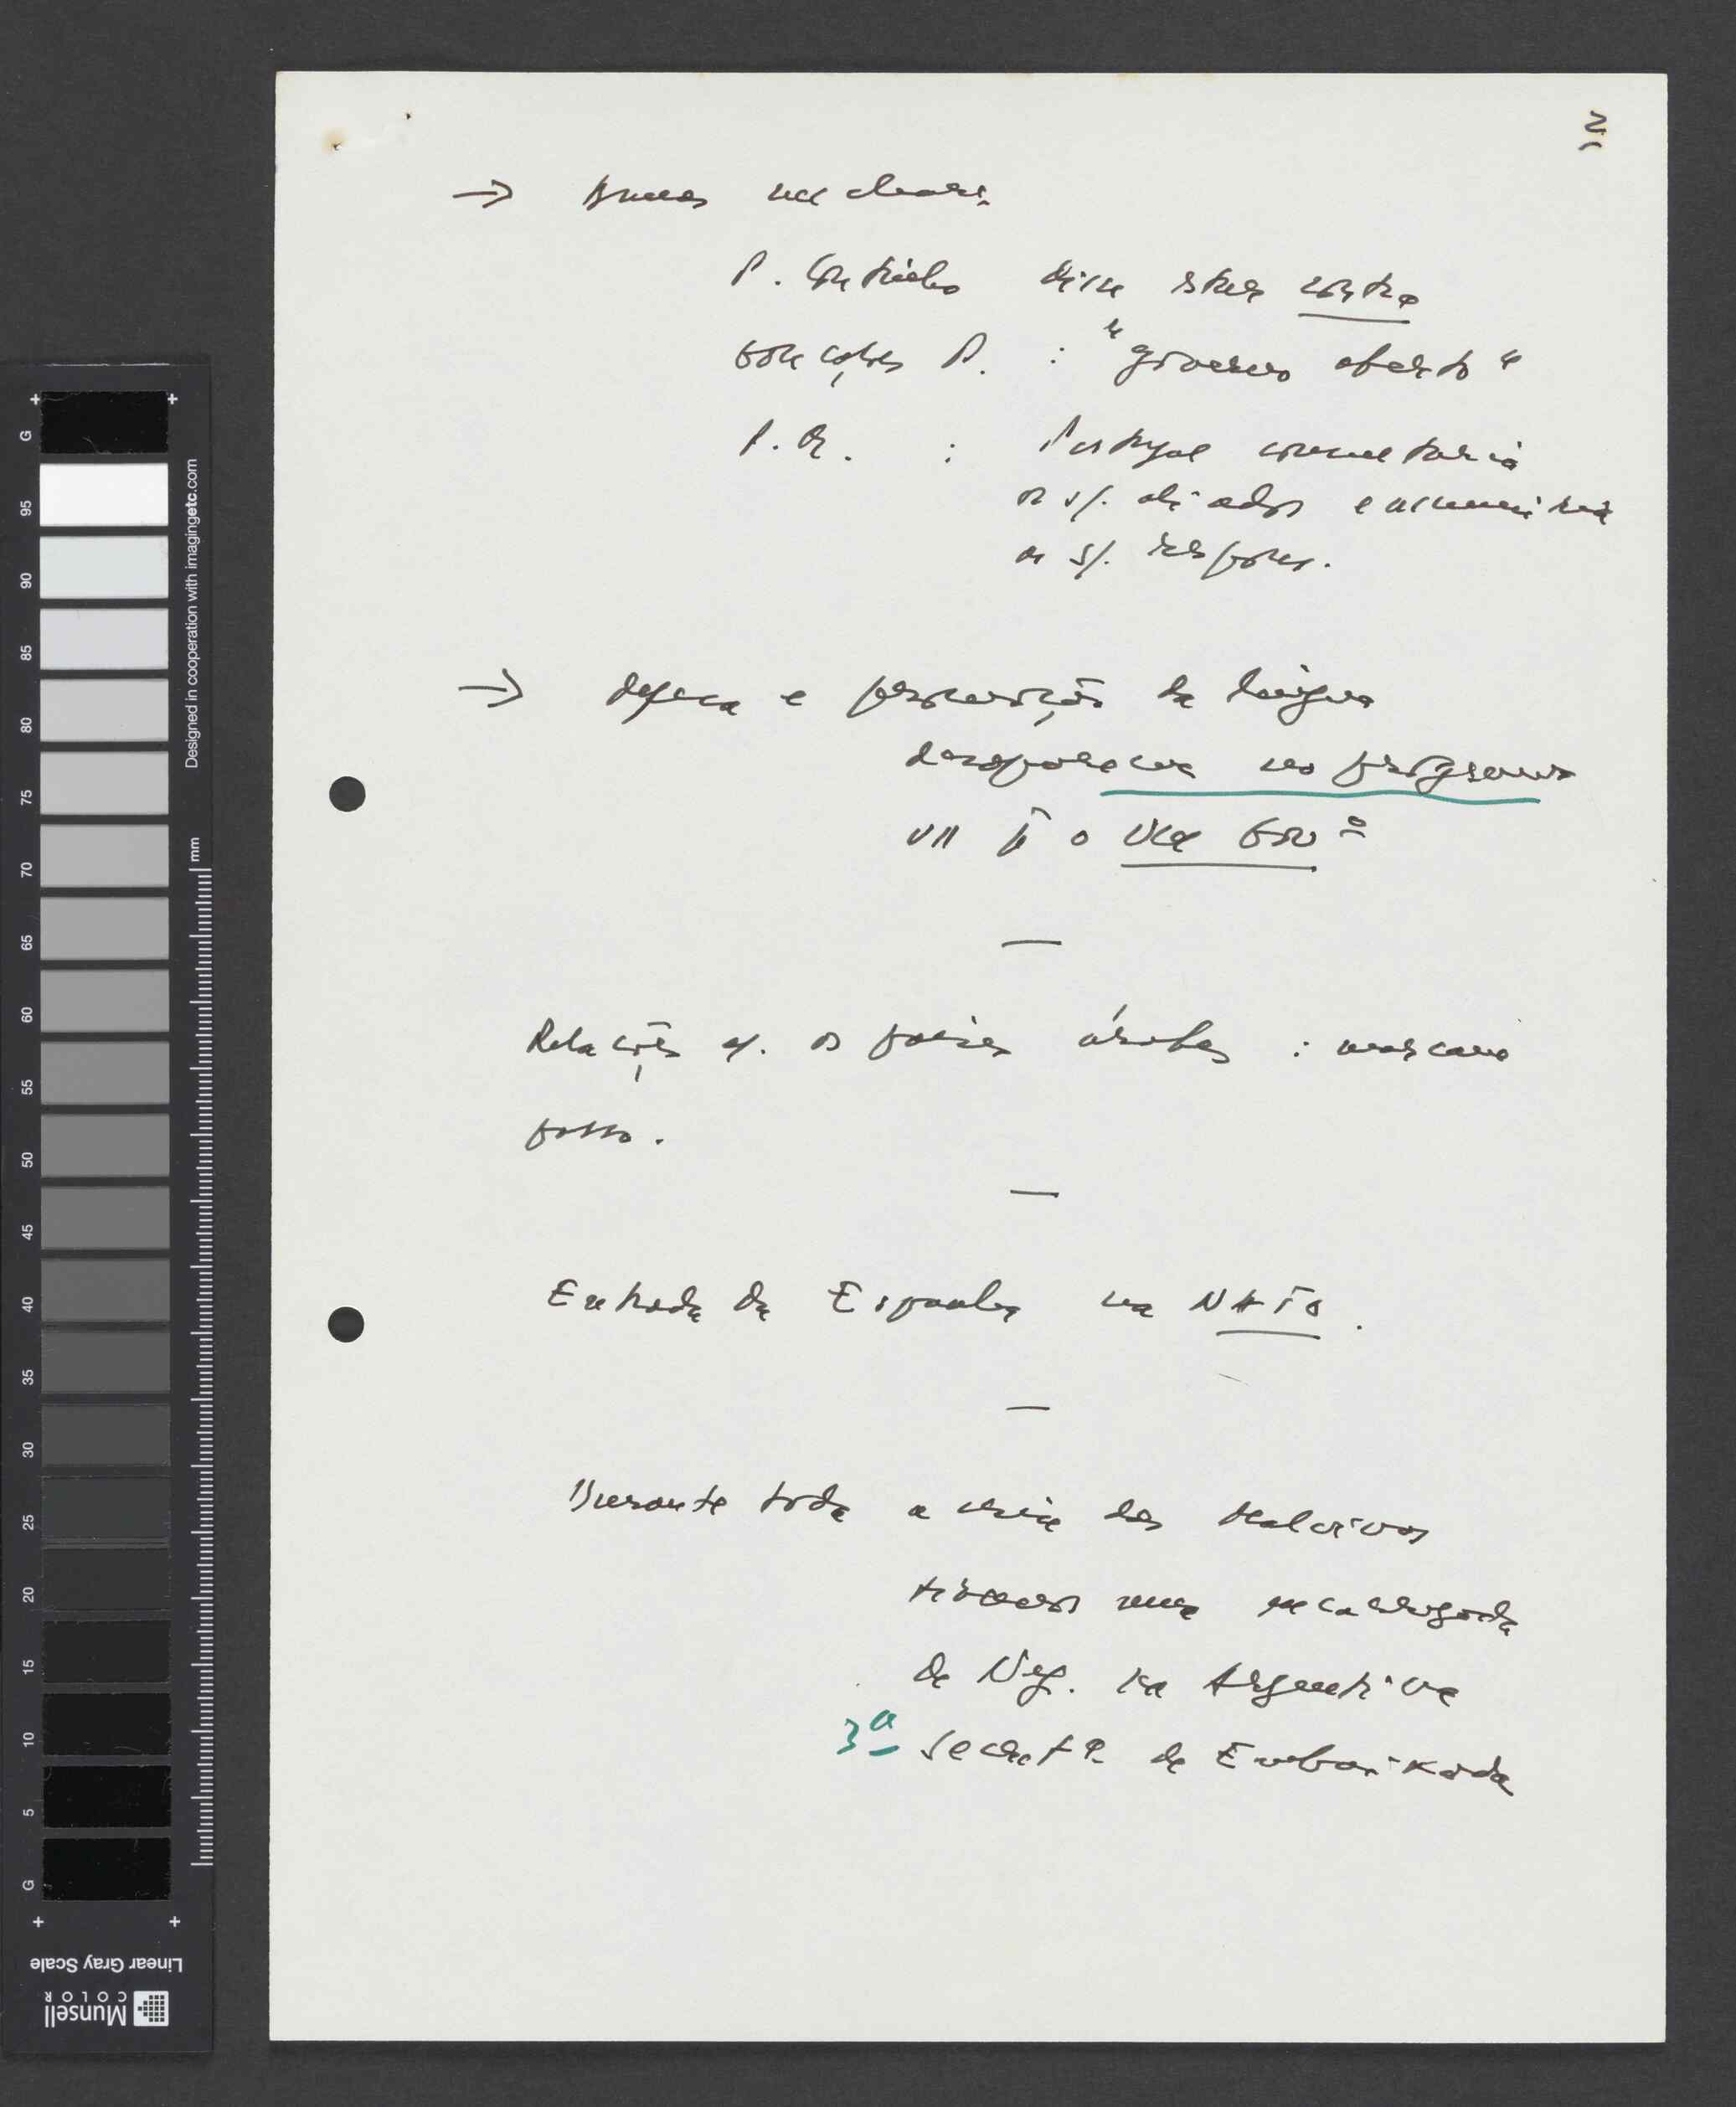 2
→ Armas nucleares
P. Coutinho disse estar contra
Gonçalves P. : "governo aberto"
P.R. : Portugal consultaria
os s/. aliados e assumiria
as s/. resp.
→ defesa e promoção da língua
desaparecem no programa
VII p o VIII Gov º
—
Relações c/. os países árabes : marcam
passo.
—
Entrada da Espanha na NATO.
—
Durante toda a crise das Malvinas
tivemos uma encarregada
de Neg. na Argentina
3ª Secret.ª de Embaixada
G
95
90
85
80
75
70
65
60
55
50
45
40
35
30
25
20
15
10
5
G
mm
Designed in cooperation with imagingetc.com
Linear Gray Scale
Munsell
COLOR